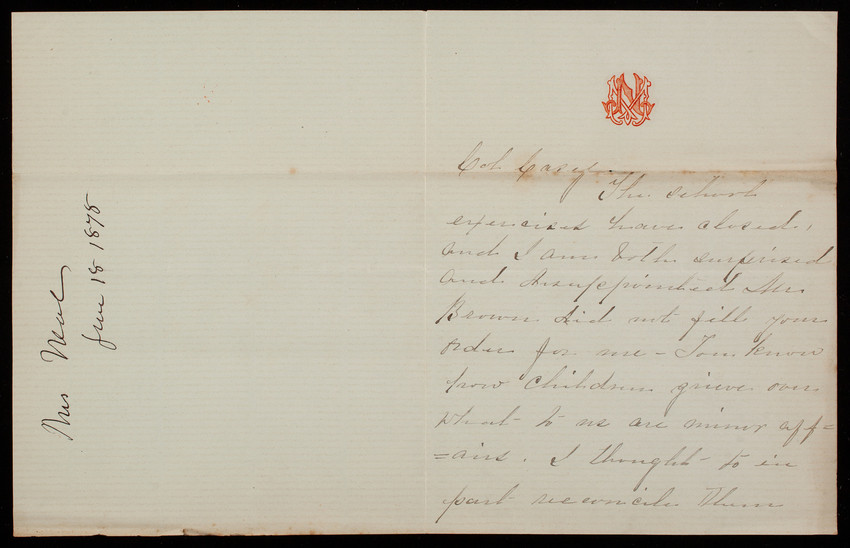 Mrs Neal
June 18 1878
Col Casey.
The school
exercises have closed,
and I am both surprised
and disappointed Mr
Brown did not fill your
order for me - You know
how children grieve over
what to us are minor aff=
=airs. I thought to in
part reconcile them